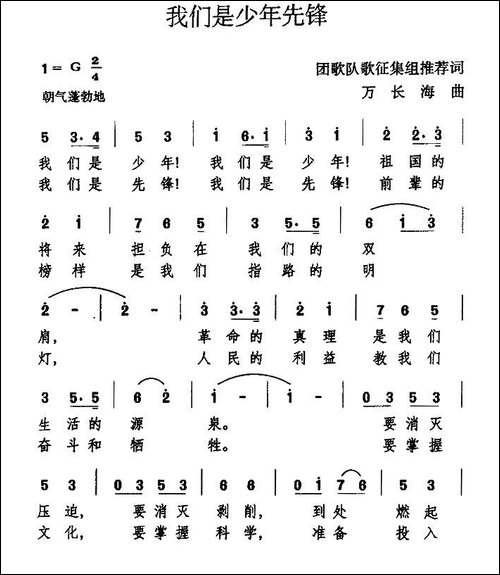 我们是少年先锋
1=G 2/4
团歌队歌征集组推荐词
朝气蓬勃地
万长海 曲
5 3·4 | 5 3 | i 6·i | 3̇ i | 2̇ 2̇·3̇ |
我们是 少年! 我们是 少年! 祖国的
我们是 先锋! 我们是 先锋! 前辈的
2̇ i | 7 6 5 | 3 5·5 | 6 i 3̇ |
将来 担负在 我们的 双
榜样 是我们 指路的 明
2̇ - | 2̇ - | 3̇ 3̇·3̇ | 2̇ i | 7 6 5 |
肩, 革命的 真理 是我们
灯, 人民的 利益 教我们
3 5·5 | 6 2̇ | i - | i - | 0 3 5 3 |
生活的 源 泉。 要消灭
奋斗和 牺 牲。 要掌握
5 3 | 0 3 5 3 | 5 3 | 0 i 7 6 | 5 3 |
压迫, 要消灭 剥削, 到处 燃起
文化, 要掌握 科学, 准备 投入